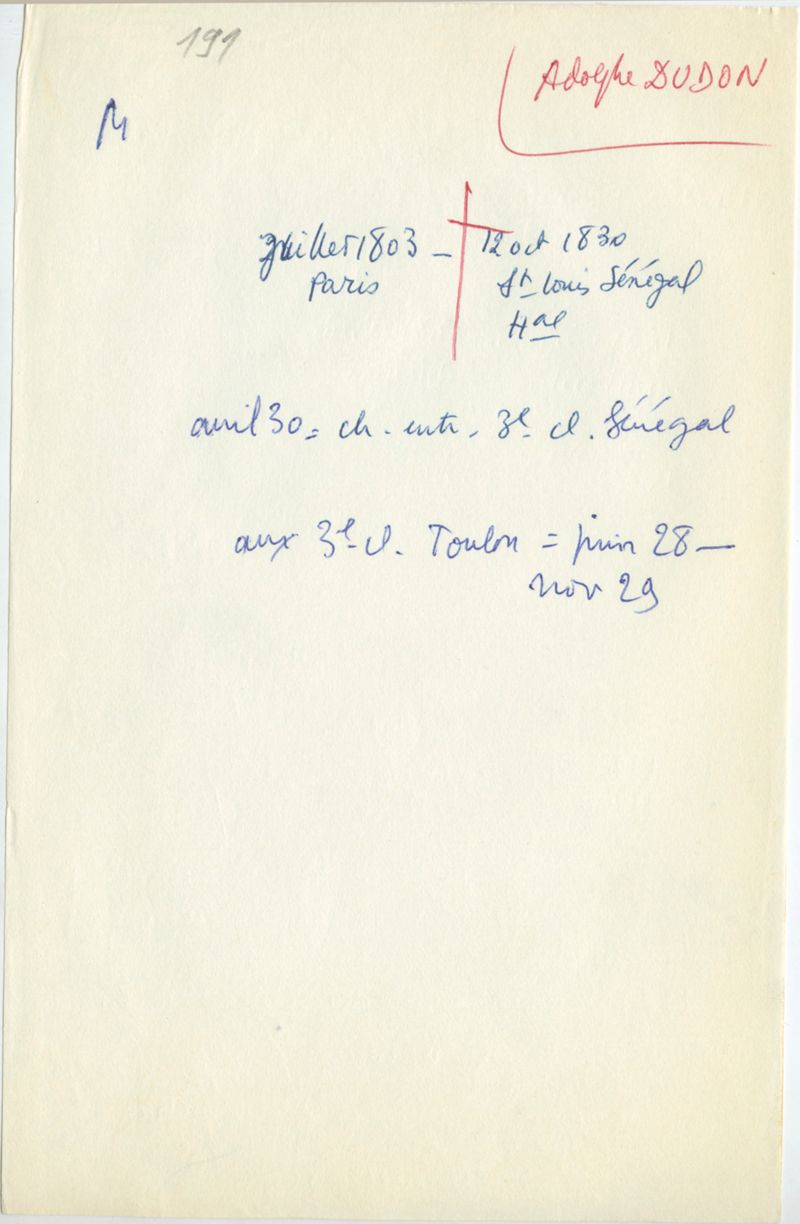 191
Adolphe DUDON
M
juillet 1803 - 12 oct 1830
Paris
St Louis Sénégal
Hal
avril 30 = ch. entr. 3e cl. Sénégal
aux 3e cl. Toulon = juin 28 —
nov 29